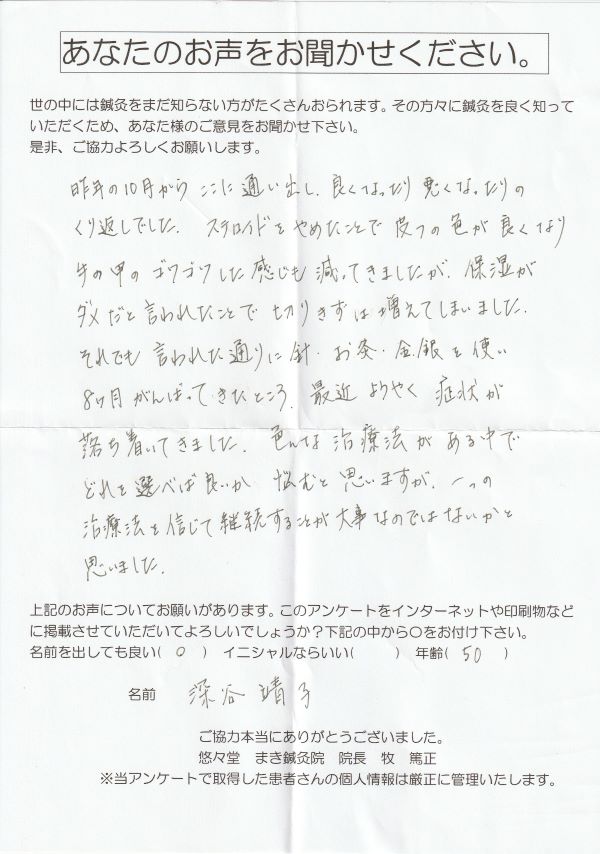 あなたのお声をお聞かせください。
世の中には鍼灸をまだ知らない方がたくさんおられます。その方々に鍼灸を良く知って
いただくため、あなた様のご意見をお聞かせ下さい。
是非、ご協力よろしくお願いします。
昨年の10月から ここに通い出し、良くなったり 悪くなったりの
くり返しでした。 ステロイドをやめたことで 皮フの色が良くなり
手の甲のゴワゴワした感じも減ってきましたが、保湿が
ダメだと言われたことで 切りきずは増えてしまいました。
それでも 言われた通りに針・お灸・金銀を使い
8ヶ月がんばってきたところ、最近 ようやく 症状が
落ち着いてきました。 色んな治療法がある中で
どれを選べば良いか 悩むと思いますが、一つの
治療法を信じて継続することが大事なのではないかと
思いました。
上記のお声についてお願いがあります。このアンケートをインターネットや印刷物など
に掲載させていただいてよろしいでしょうか？下記の中から○をお付け下さい。
名前を出しても良い( ○ ) イニシャルならいい( ) 年齢( 50 )
名前 深谷 靖子
ご協力本当にありがとうございました。
悠々堂 まき鍼灸院 院長 牧 篤正
※当アンケートで取得した患者さんの個人情報は厳正に管理いたします。